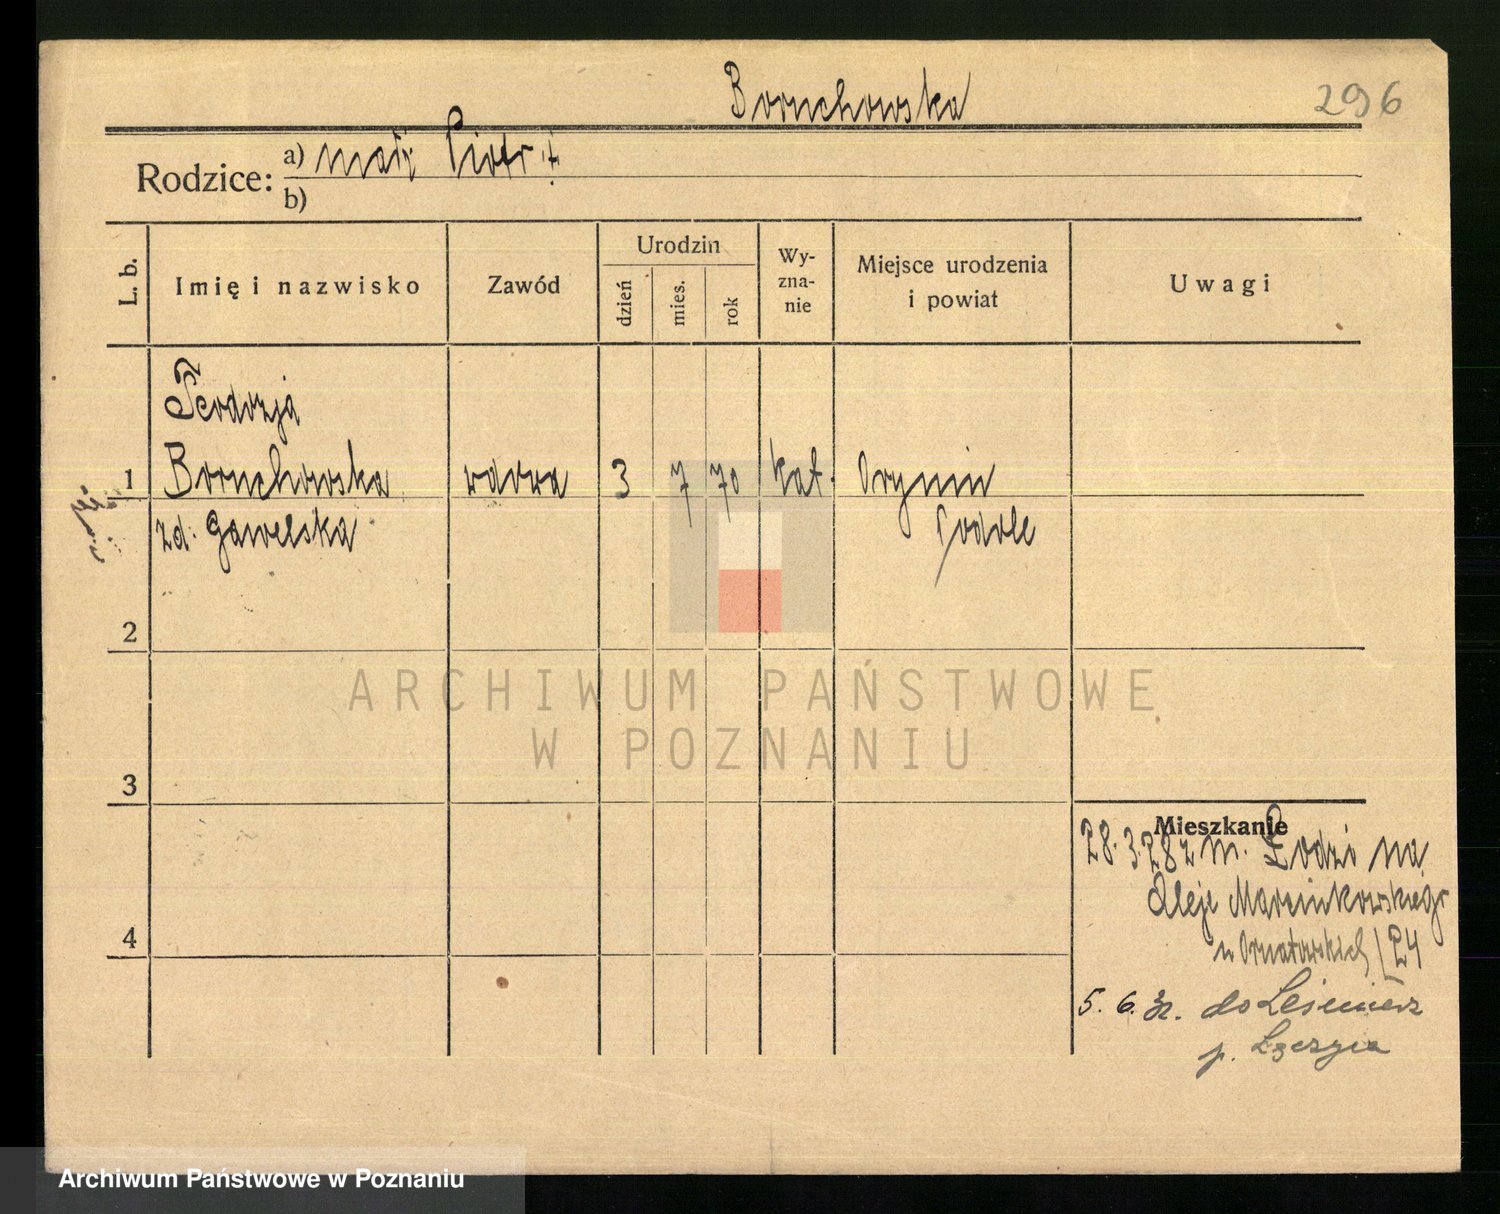 Boruchowska
296
Rodzice:
a) mąż Piotr †
b)
L. b.
Imię i nazwisko
Zawód
Urodzin
dzień
mies.
rok
Wy-
zna-
nie
Miejsce urodzenia
i powiat
Uwagi
Teodozja
1 Boruchowska wdowa 3 7 70 kat. Orynin
zd. Gawelska Podole
2
3
4
Mieszkanie
28.3.28 z m. Łodzi na
Aleje Marcinkowskiego
u Ornatowskich 24
5. 6. do Leśmierz
p. Łęczyca
ARCHIWUM PAŃSTWOWE
W POZNANIU
Archiwum Państwowe w Poznaniu